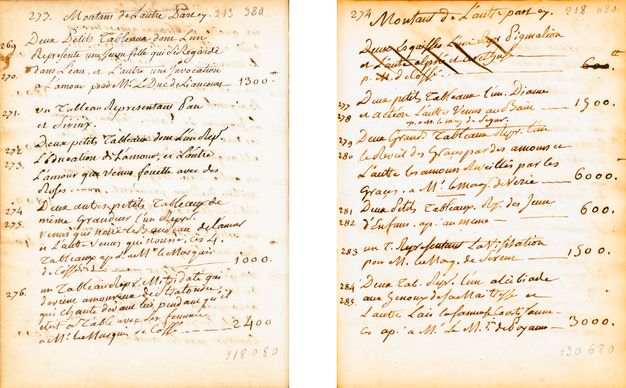 273. Montant de L'autre Part cy. 213 980
269 Deux Petits Tableaux dont L'un
Represente un jeune fille qui se Regarde
270. dans L'eau, et L'autre une Invocation
a L'amour pour Mr. Le Duc de Lancour 1300
271. un Tableau Representant Pan
et Sirinx.
272. Deux petits Tableau dont L'un Repr.
273. L'Education de L'amour, et L'autre
L'amour que Venus fouette avec des
Roses
274 Deux autres petits Tableaux de
même Grandeur L'un Repr.
275. Venus qui noue le Bandeau de L'amour
et L'autre Venus qui nourrit, Ces 4.
Tableaux ap. a Mr. le Marquis
de Cossé 1000
276. un Tableau Repr. Mitridate qui
devient amoureux de Stratonice,
qui chante devant lui pendant qu'il
est a Table avec ses femmes
a Mr. le Marquis de Cossé 2400
218 080
274 Montant de L'autre part cy. 218 080
Deux Esquisses L'une Repr. Pigmalion
et L'autre alphée et arethuse 600 tt
p. M. de Cossé
277 Deux petits Tableaux L'un, Diane
278 et acteon L'autre Venus au Bain 1500.
ap. a Mr. le marq. de Segur
279 Deux Grands Tableaux Repr. L'un
280 le Reveil des Graces par des amours et
L'autre les amours Reveillés par les
Graces. a Mr. le Marq. de Verie 6000.
281 Deux Petits Tableaux. Rep. des Jeux
282 d'Enfans. ap. au meme 600.
283 un T. Representant La Visitation
pour M. le Maq. de Serent 1500.
284 Deux Tab. Repr. L'un alcibiade
285. aux Genoux de sa Maitresse et
L'autre Laïs la fameuse Courtisanne
Ces ap. a Mr. Le M.is de Poyanne 3000.
230 680